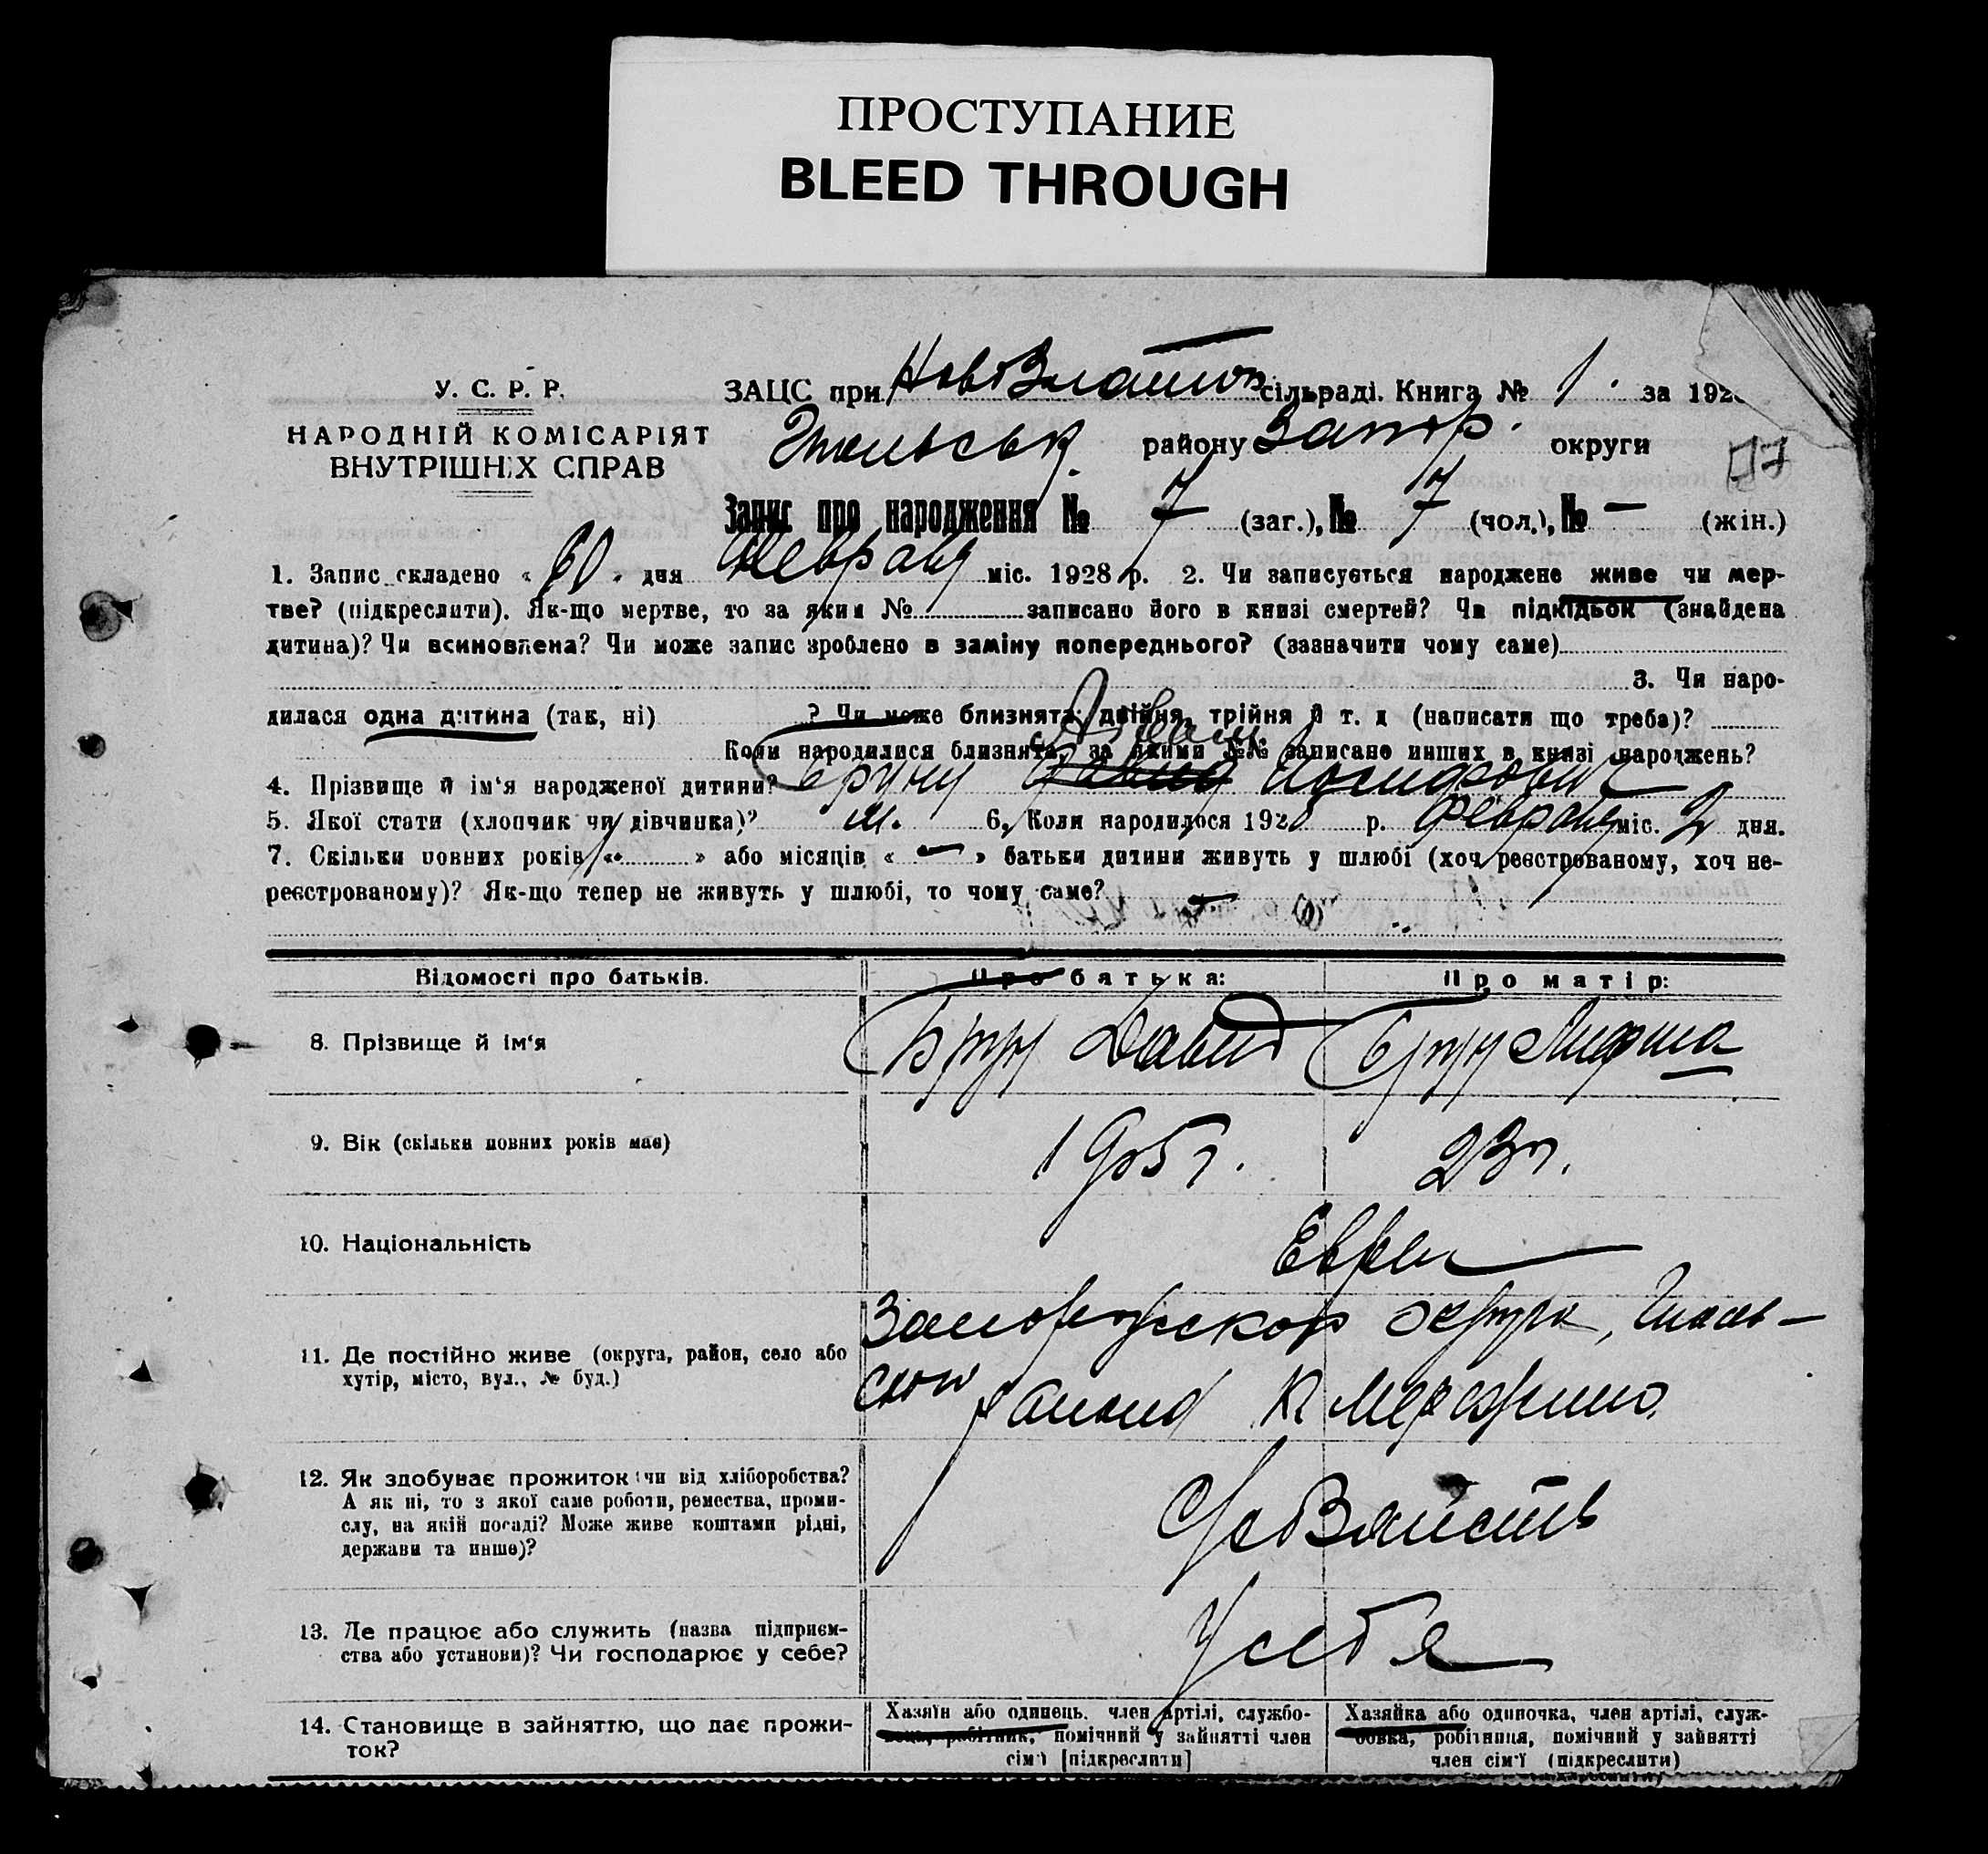 ПРОСТУПАНИЕ
BLEED THROUGH
У. С. Р. Р.
НАРОДНІЙ КОМІСАРІЯТ
ВНУТРІШНІХ СПРАВ
ЗАЦС при сільраді. Книга № 1. за 192
району Запор. округи
Запис про народження № 7 (заг.), № 7 (чол.), № — (жін.)
1. Запис складено « » дня февраля міс. 1928 р. 2. Чи записується народжене живе чи мер-
тве? (підкреслити). Як-що мертве, то за яким № записано його в книзі смертей? Чи підкідьок (знайдена
дитина)? Чи всиновлена? Чи може запис зроблено в заміну попереднього? (зазначити чому саме)
3. Чи наро-
дилася одна дитина (так, ні) ? Чи може близнята: двійня, трійня й т. д (написати що треба)?
Коли народилися близнята, за якими №№ записано инших в книзі народжень?
4. Прізвище й ім'я народженої дитини?
5. Якої статі (хлопчик чи дівчинка)? м. 6. Коли народилося 1928 р. февраля міс. 2 дня.
7. Скільки повних років « » або місяців « — » батьки дитини живуть у шлюбі (хоч реєстрованому, хоч не-
реєстрованому)? Як-що тепер не живуть у шлюбі, то чому саме? —
Відомості про батьків.
Про батька:
Про матір:
8. Прізвище й ім'я
Давид
9. Вік (скільки повних років має)
1905 г.
23 г.
10. Національність
Евреи
11. Де постійно живе (округа, район, село або
хутір, місто, вул., № буд.)
12. Як здобуває прожиток чи від хліборобства?
А як ні, то з якої саме роботи, ремества, проми-
слу, на якій посаді? Може живе коштами рідні,
держави та инше)?
13. Де працює або служить (назва підприєм-
ства або установи)? Чи господарює у себе?
У себя
14. Становище в зайняттю, що дає прожи-
ток?
Хазяїн або одинець, член артілі, службо-
вець, робітник, помічний у зайнятті член
сім'ї [підкреслити]
Хазяйка або одиночка, член артілі, служ-
бовка, робітниця, помічний у зайнятті
член сім'ї (підкреслити)